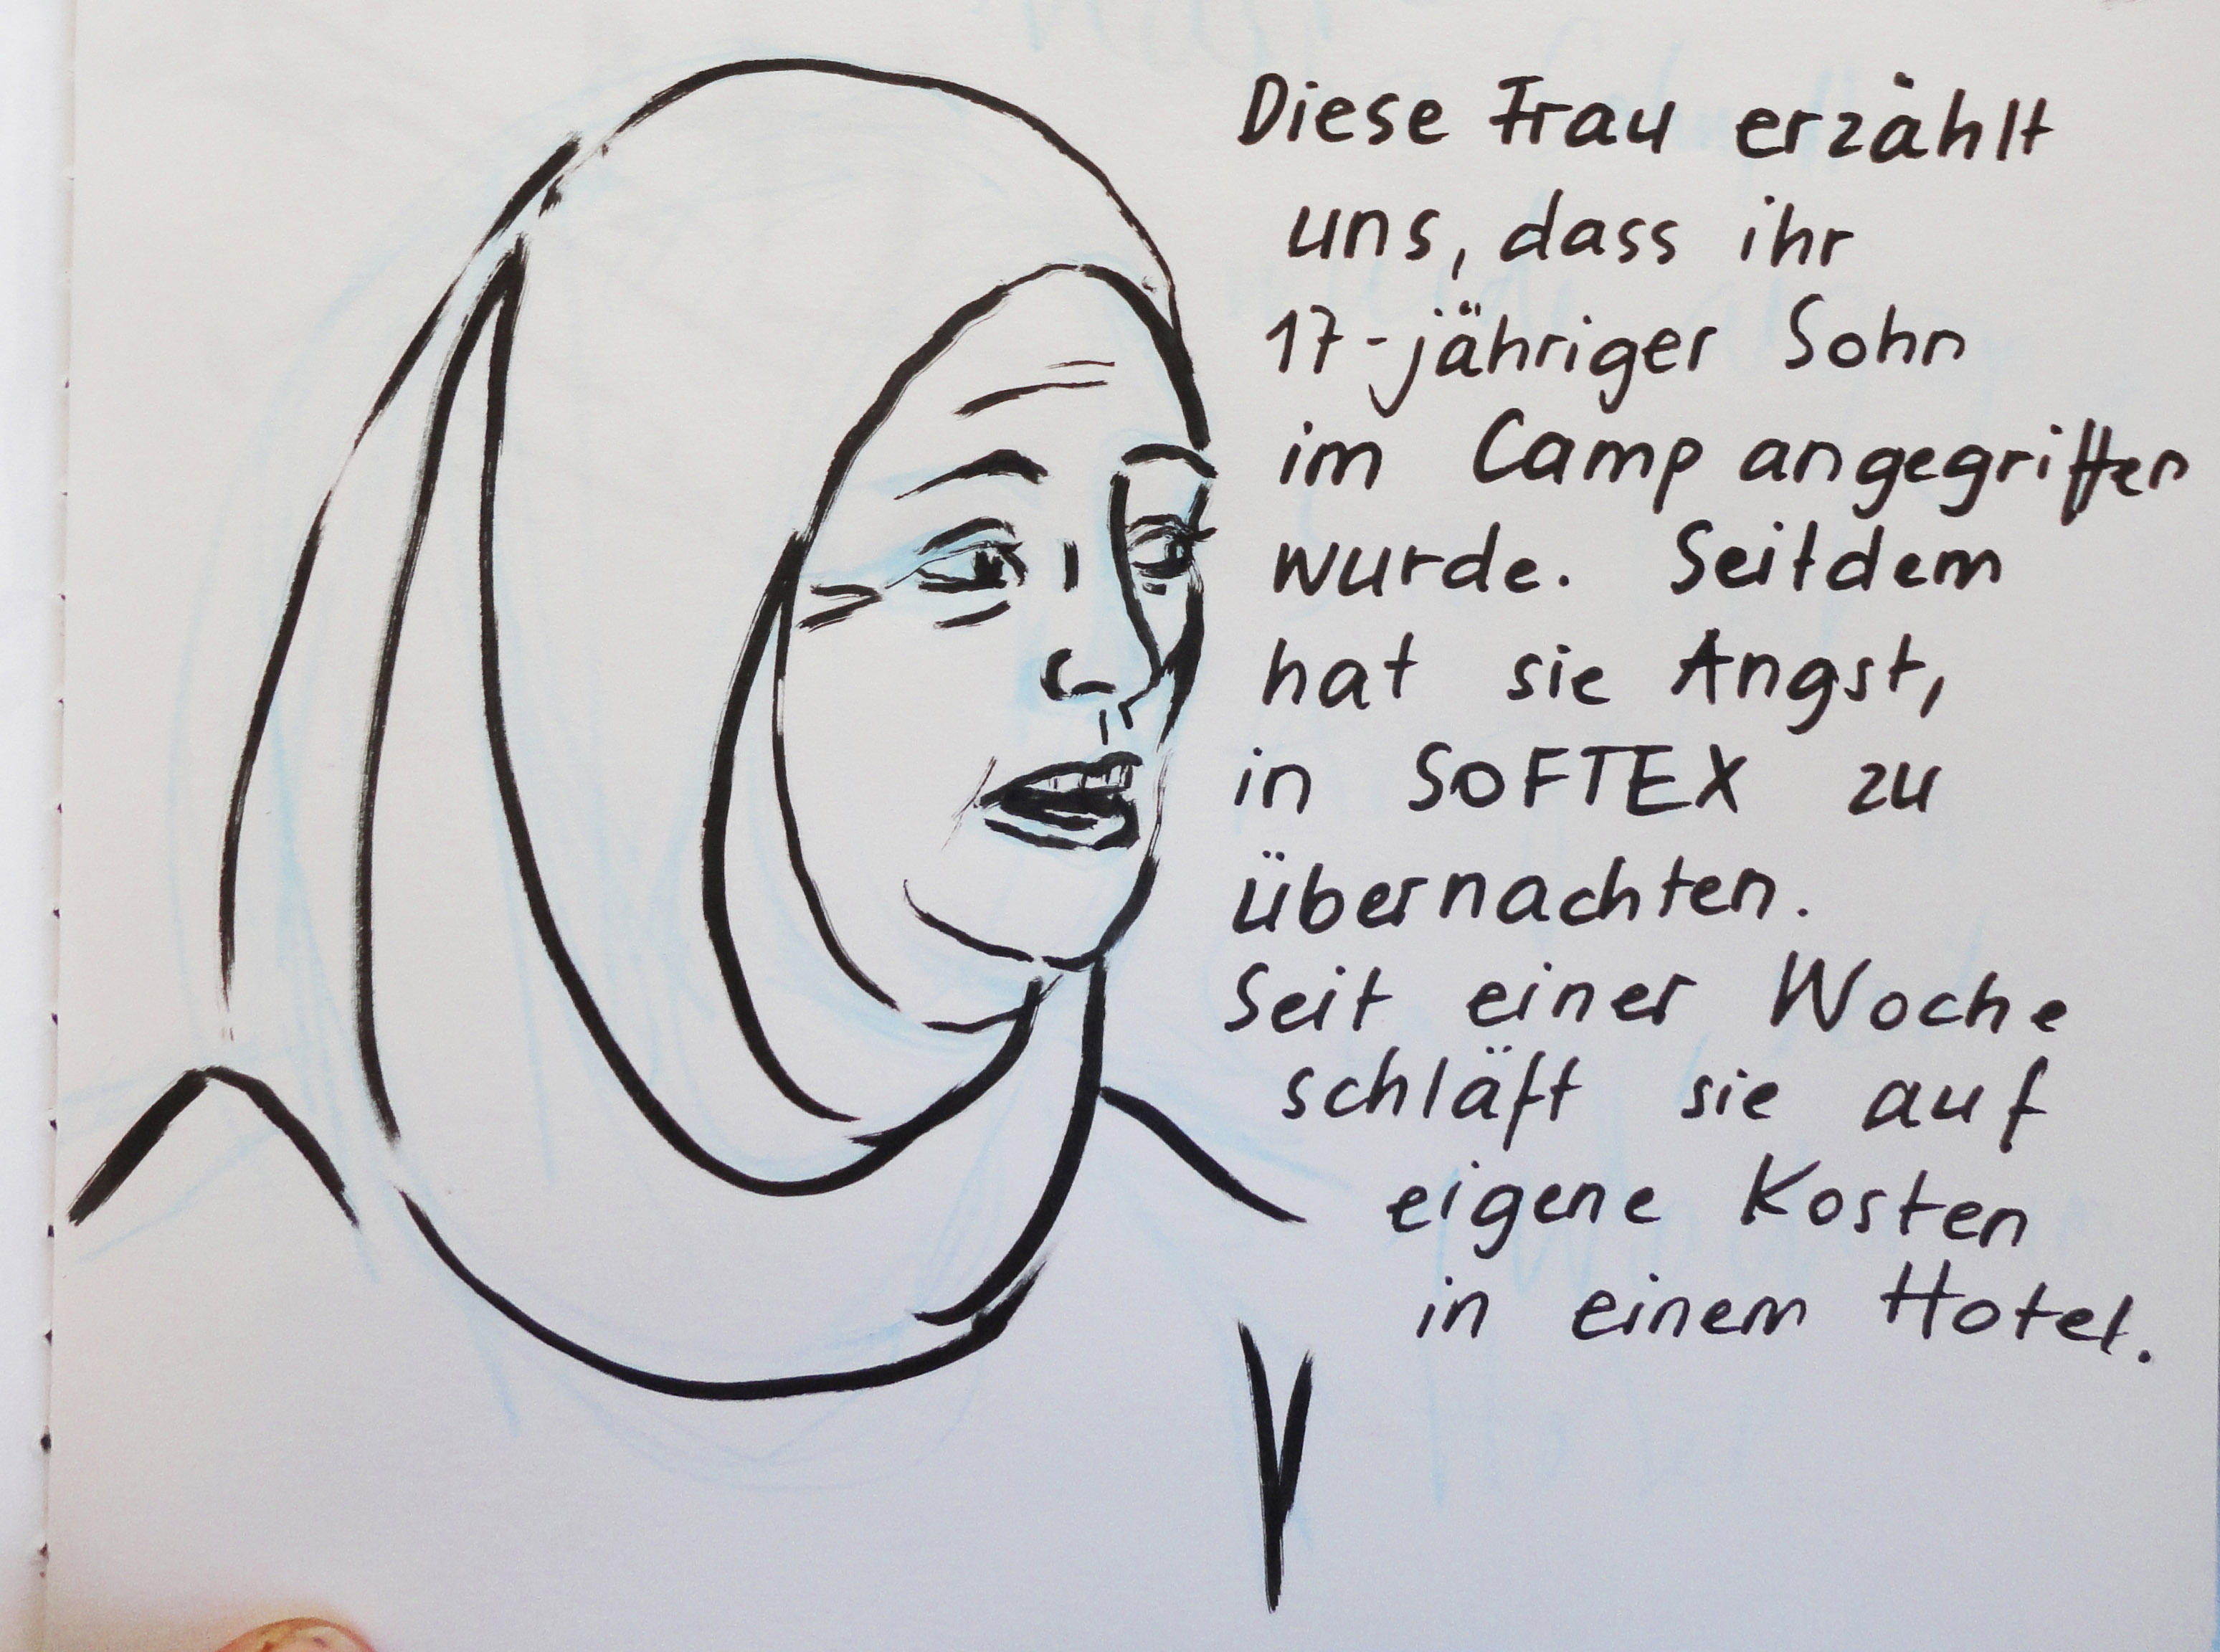 Diese Frau erzählt
uns, dass ihr
17-jähriger Sohn
im Camp angegriffen
wurde. Seitdem
hat sie Angst,
in SOFTEX zu
übernachten.
Seit einer Woche
schläft sie auf
eigene Kosten
in einem Hotel.